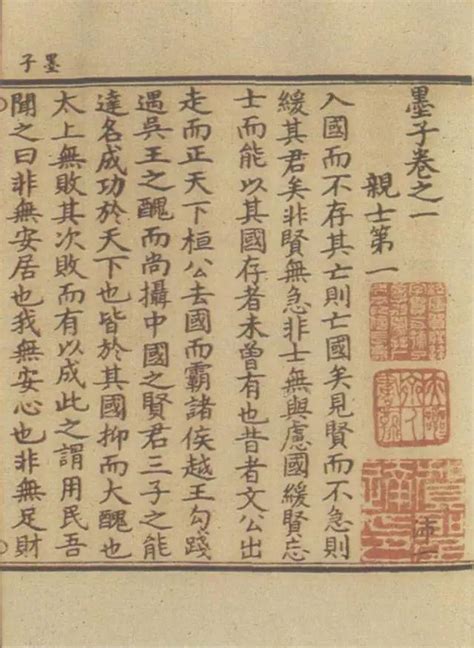 墨子
墨子卷之一
親士第一
入國而不存其亡則亡國矣見賢而不急則
緩其君矣非賢無急非士無與慮國緩賢忘
士而能以其國存者未曾有也昔者文公出
走而正天下桓公去國而霸諸侯越王勾踐
遇吳王之醜而尚攝中國之賢君三子之能
達名成功於天下也皆於其國抑而大醜也
太上無敗其次敗而有以成此之謂用民吾
聞之曰非無安居也我無安心也非無足財